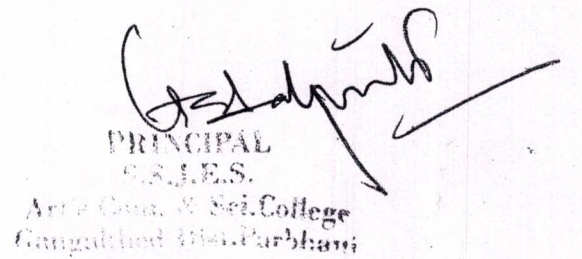 PRINCIPAL
S.S.J.E.S.
Art's Com. & Sci. College
Gangakhed Dist. Parbhani